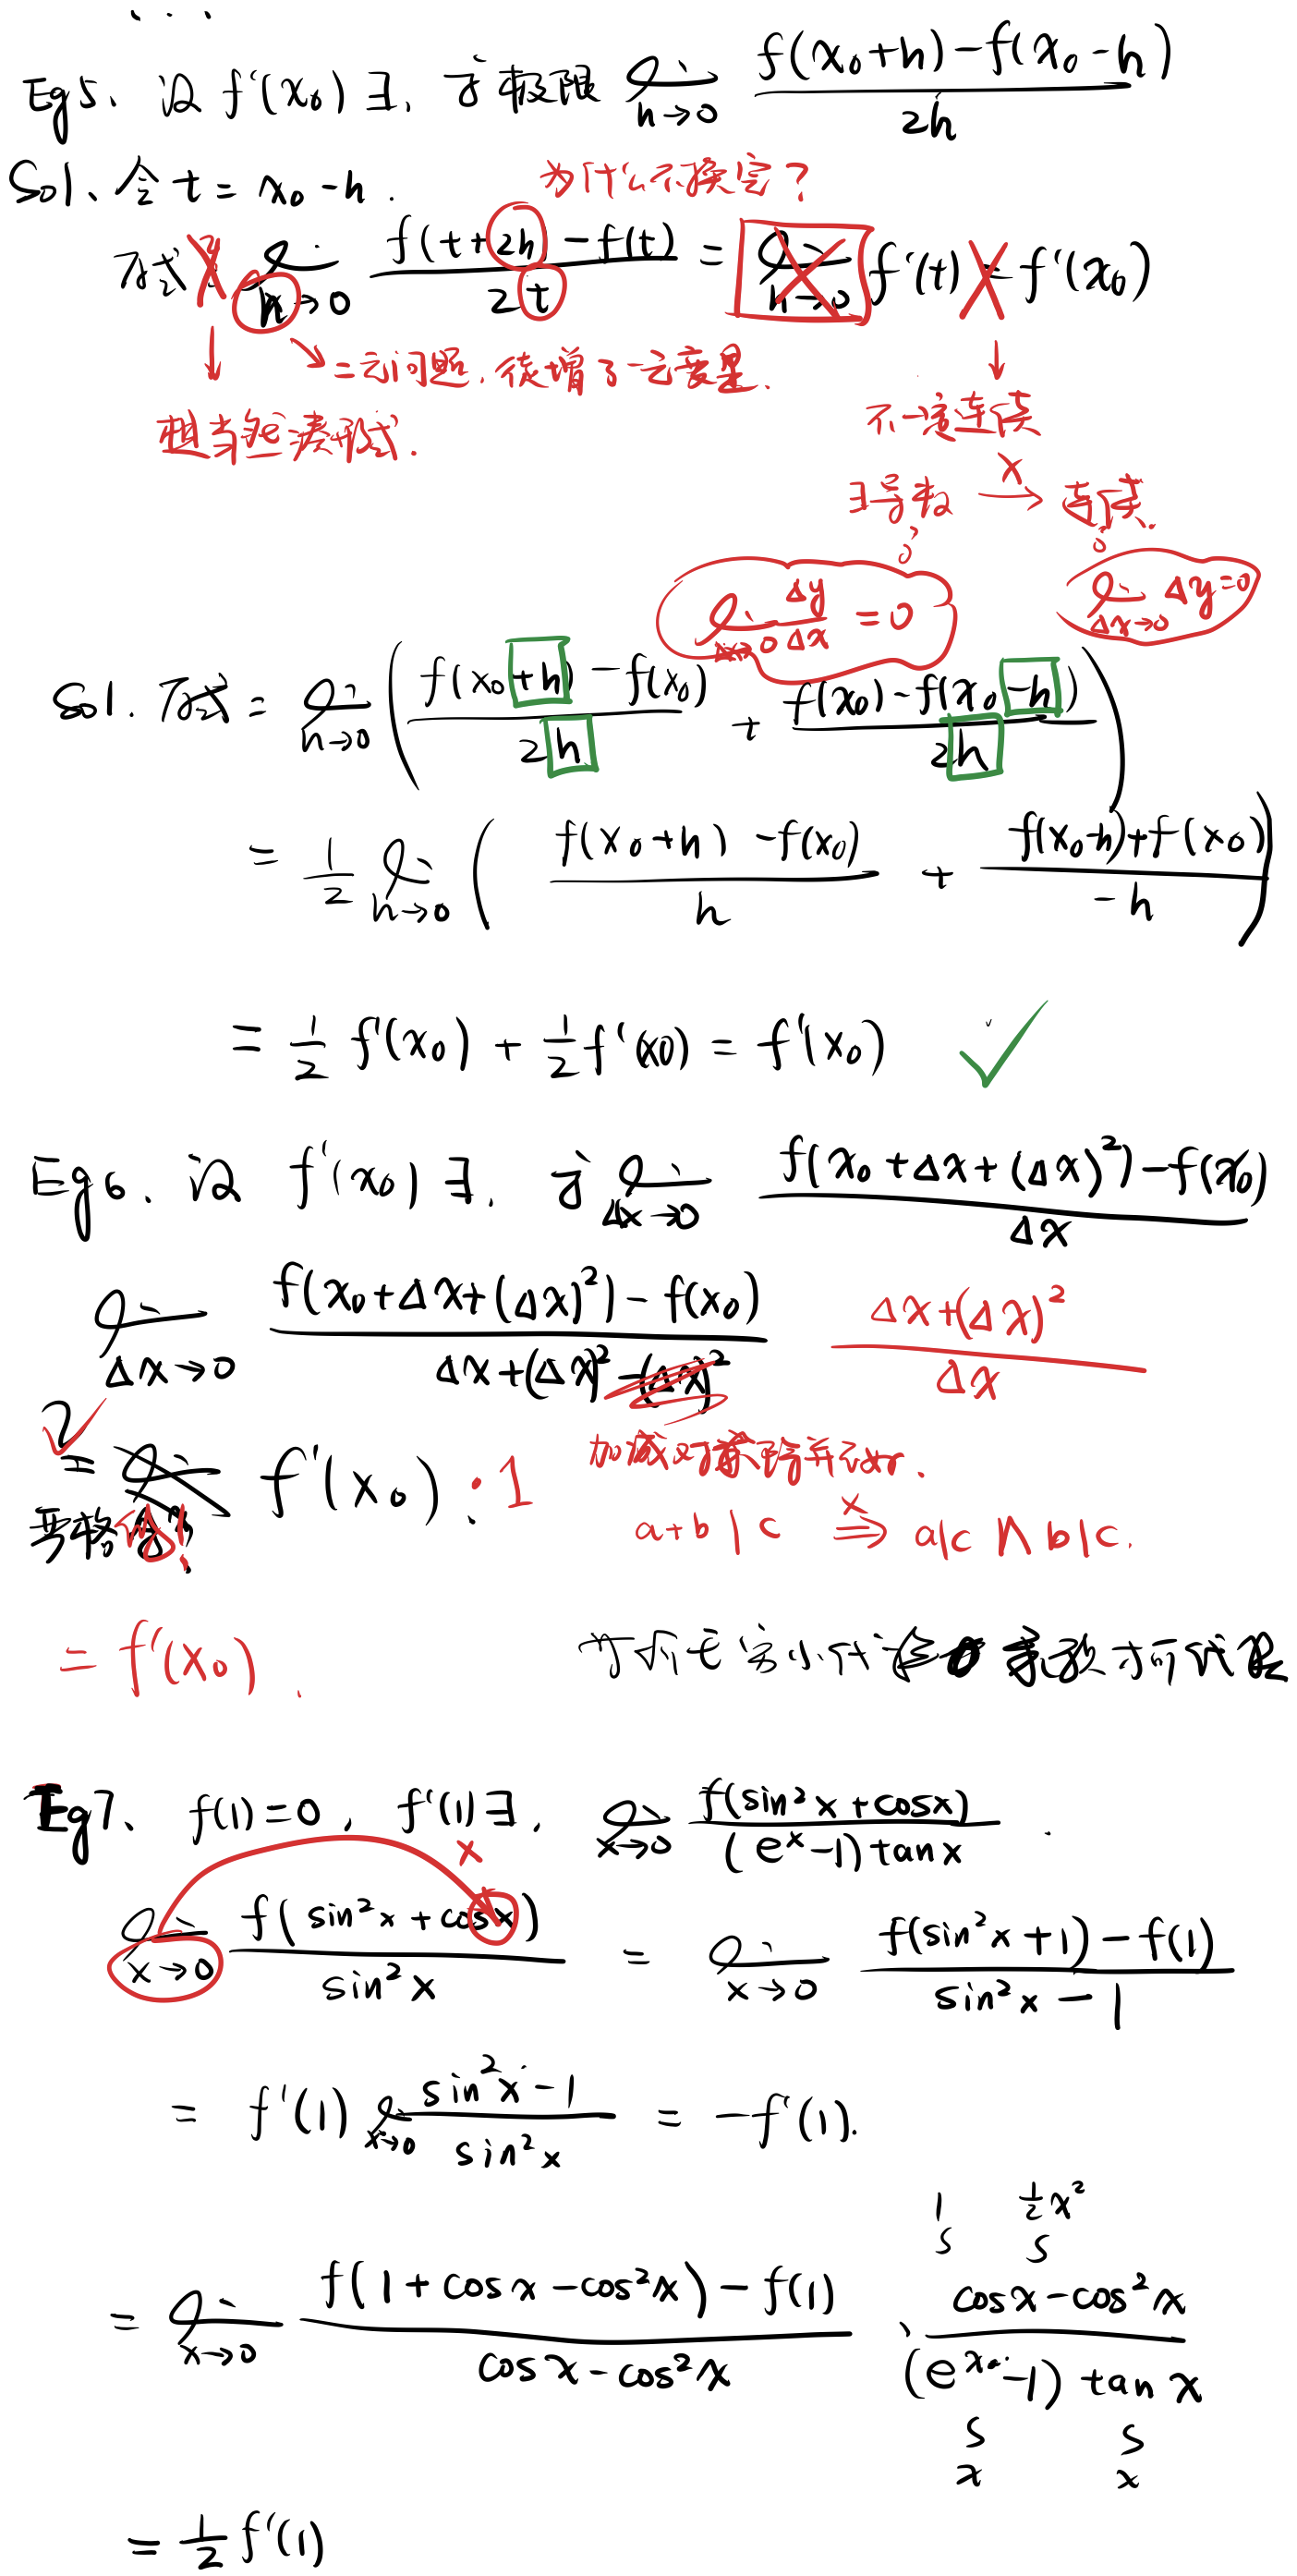 ...
Eg5、设 f'(x₀)∃, 求极限 lim_{h→0} \frac{f(x₀+h)-f(x₀-h)}{2h}
Sol、令 t = x₀-h.
为什么不换完?
原式 = lim_{h→0} \frac{f(t+2h)-f(t)}{2t} = lim_{h→0} f'(t) = f'(x₀)
二元问题, 徒增了一元变量.
想当然凑形式.
不一定连续
∃导数 →(×) 连续.
lim_{Δx→0} \frac{Δy}{Δx} = 0
lim_{Δx→0} Δy=0
Sol. 原式 = lim_{h→0} ( \frac{f(x₀+h)-f(x₀)}{2h} + \frac{f(x₀)-f(x₀-h)}{2h} )
= \frac{1}{2} lim_{h→0} ( \frac{f(x₀+h)-f(x₀)}{h} + \frac{f(x₀-h)+f(x₀)}{-h} )
= \frac{1}{2} f'(x₀) + \frac{1}{2} f'(x0) = f'(x₀) ✓
Eg6. 设 f'(x₀)∃. 求 lim_{Δx→0} \frac{f(x₀+Δx+(Δx)²)-f(x₀)}{Δx}
lim_{Δx→0} \frac{f(x₀+Δx+(Δx)²)-f(x₀)}{Δx+(Δx)²} \frac{Δx+(Δx)²}{Δx}
? ✓
= f'(x₀) · 1
严格
加减对乘除并不好.
a+b | c ⇒(×) a|c ∧ b|c.
= f'(x₀).
Eg7、f(1)=0, f'(1)∃, lim_{x→0} \frac{f(sin²x+cosx)}{(eˣ-1)tanx}.
×
lim_{x→0} \frac{f(sin²x+cosx)}{sin²x} = lim_{x→0} \frac{f(sin²x+1)-f(1)}{sin²x-1}
= f'(1) lim_{x→0} \frac{sin²x-1}{sin²x} = -f'(1).
1 \frac{1}{2}x²
= lim_{x→0} \frac{f(1+cosx-cos²x)-f(1)}{cosx-cos²x} · \frac{cosx-cos²x}{(eˣ-1)tanx}
x x
= \frac{1}{2} f'(1)